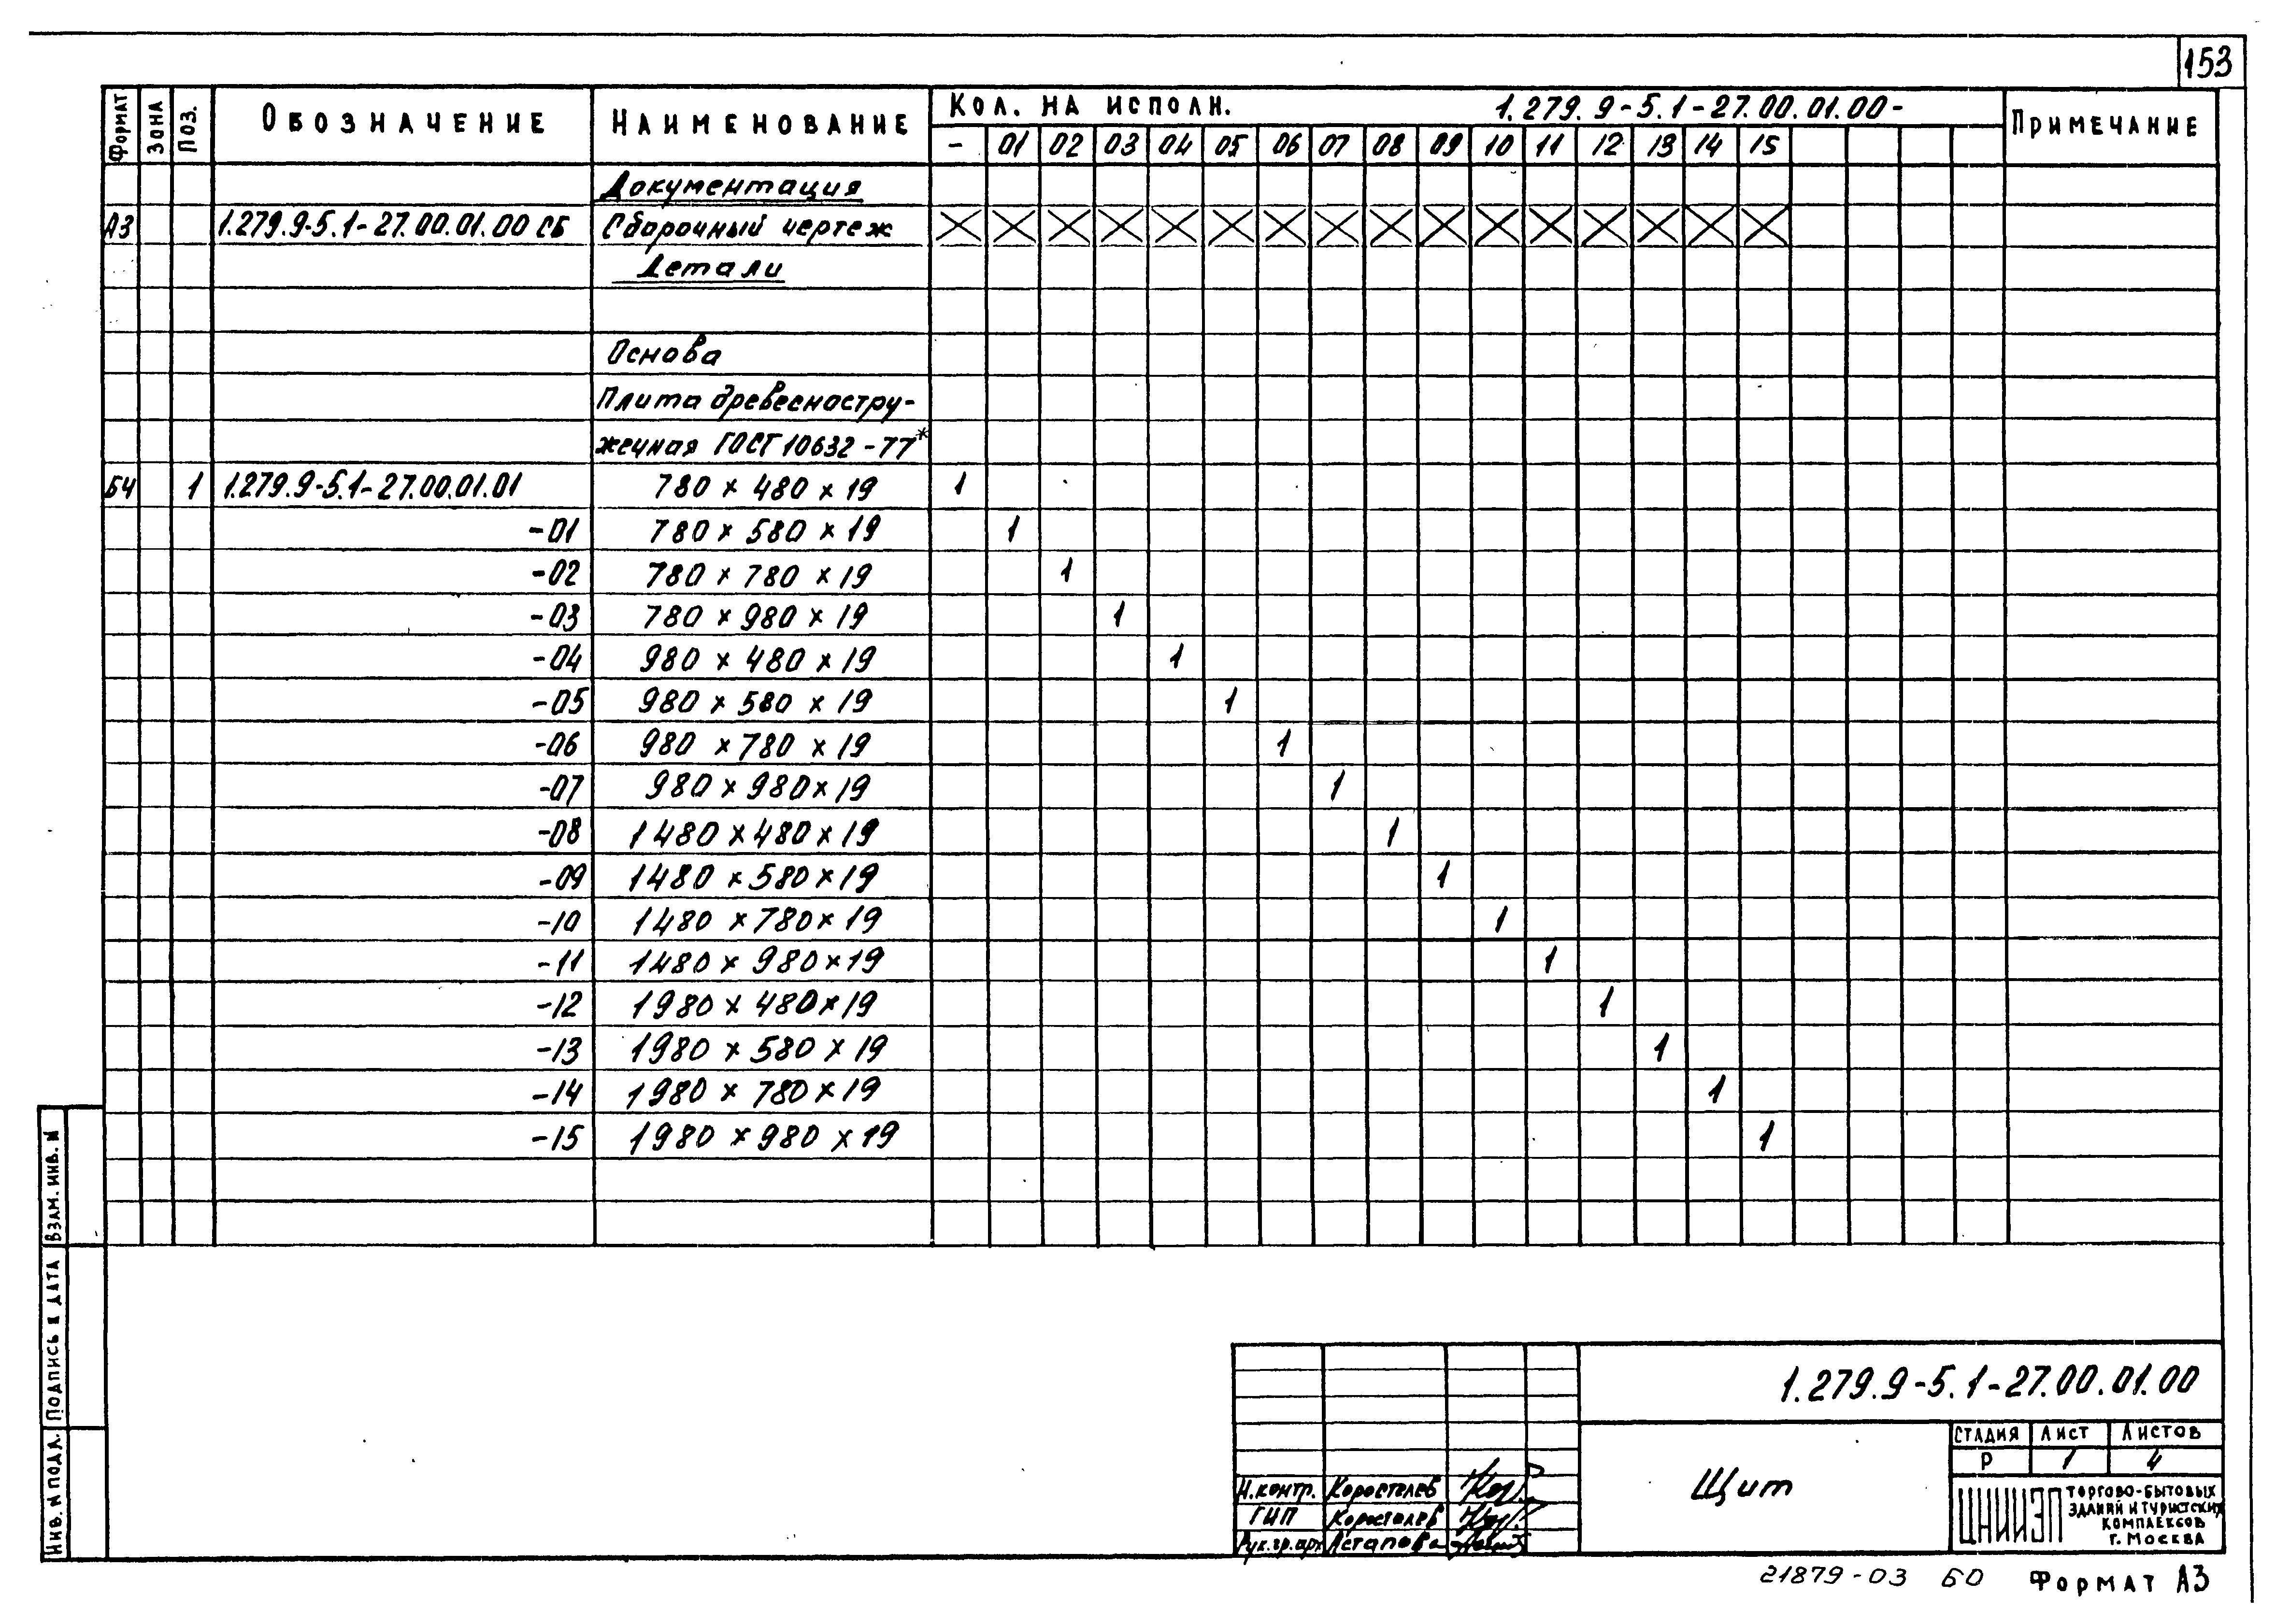 153
Формат Зона Поз. Обозначение Наименование Кол. на исполн. 1.279.9-5.1-27.00.01.00- Примечание
- 01 02 03 04 05 06 07 08 09 10 11 12 13 14 15
Документация
А3 1.279.9-5.1-27.00.01.00 СБ Сборочный чертеж X X X X X X X X X X X X X X X X
Детали
Основа
Плита древесностру-
жечная ГОСТ 10632-77*
БЧ 1 1.279.9-5.1-27.00.01.01 780 x 480 x 19 1
-01 780 x 580 x 19 1
-02 780 x 780 x 19 1
-03 780 x 980 x 19 1
-04 980 x 480 x 19 1
-05 980 x 580 x 19 1
-06 980 x 780 x 19 1
-07 980 x 980 x 19 1
-08 1480 x 480 x 19 1
-09 1480 x 580 x 19 1
-10 1480 x 780 x 19 1
-11 1480 x 980 x 19 1
-12 1980 x 480 x 19 1
-13 1980 x 580 x 19 1
-14 1980 x 780 x 19 1
-15 1980 x 980 x 19 1
Взам. инв. N
Подпись и дата
Инв. N подл.
1.279.9-5.1-27.00.01.00
Стадия Лист Листов
Р 1 4
Щит
Н.контр. Коросталев
ГИП Коросталев
Рук.гр.арх Астапова
ЦНИИЭП торгово-бытовых
зданий и туристских
комплексов
г. Москва
21879-03 60 Формат А3